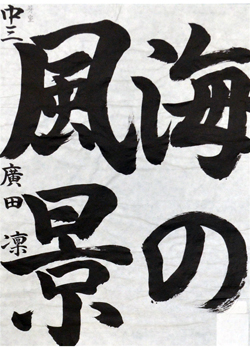 海の
風景
中三 廣田 凜